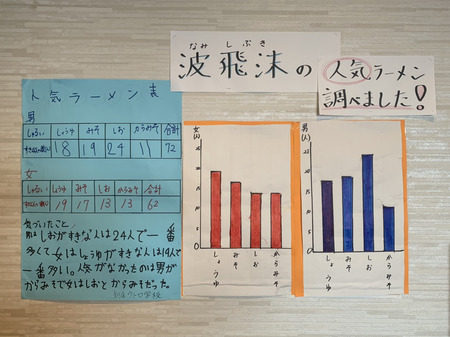 なみ しぶき
波飛沫の
人気ラーメン
調べました!
人気ラーメン 表
男
しゅるい しょうゆ みそ しお からみそ 合計
18 19 24 11 72
女
しゅるい しょうゆ みそ しお からみそ 合計
19 17 13 13 62
気づいたこと
男は しおがすきな人は24人で一番
多くて 女はしょうゆがすきな人は19人で
一番多い。人気がなかったのは男が
からみそで女はしおとからみそだった。
女(人)
しょうゆ みそ しお からみそ
男(人)
しょうゆ みそ しお からみそ